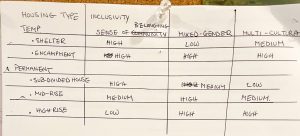 HOUSING TYPE INCLUSIVITY
BELONGING
SENSE OF COMMUNITY MIXED-GENDER MULTI-CULTURAL
TEMP
• SHELTER HIGH LOW MEDIUM
• ENCAMPMENT HIGH HIGH HIGH
PERMANENT
• SUB-DIVIDED HOUSE HIGH MEDIUM LOW
• MID-RISE MEDIUM HIGH MEDIUM
• HIGH RISE LOW HIGH HIGH